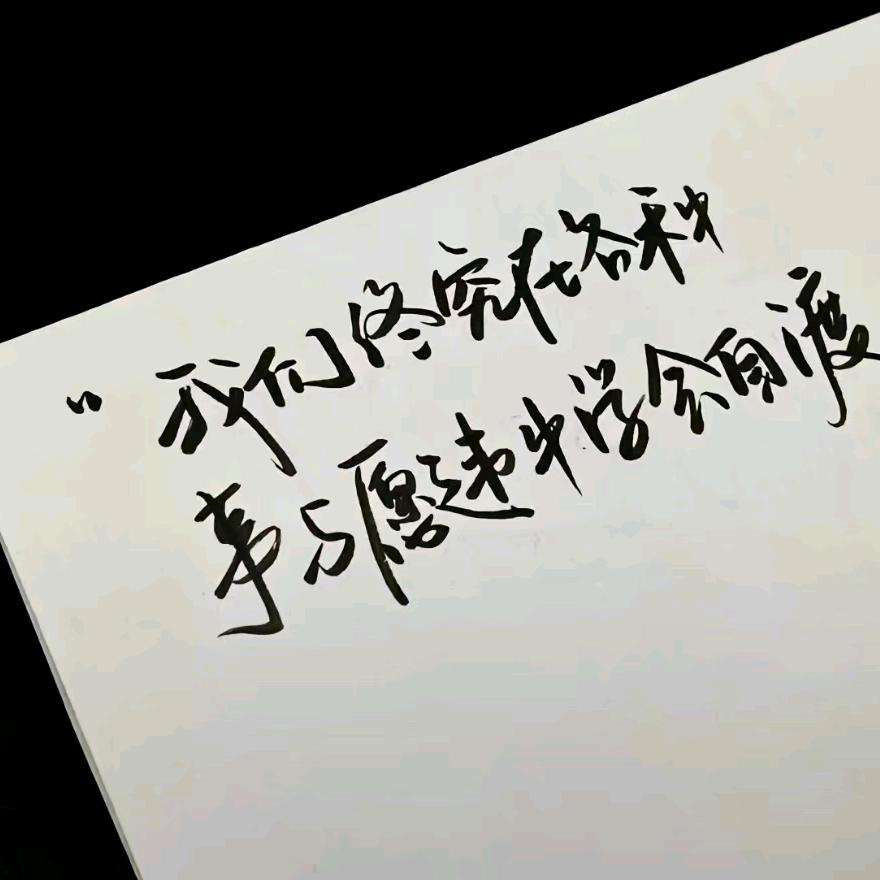 “我们终究在各种
事与愿违中学会自渡